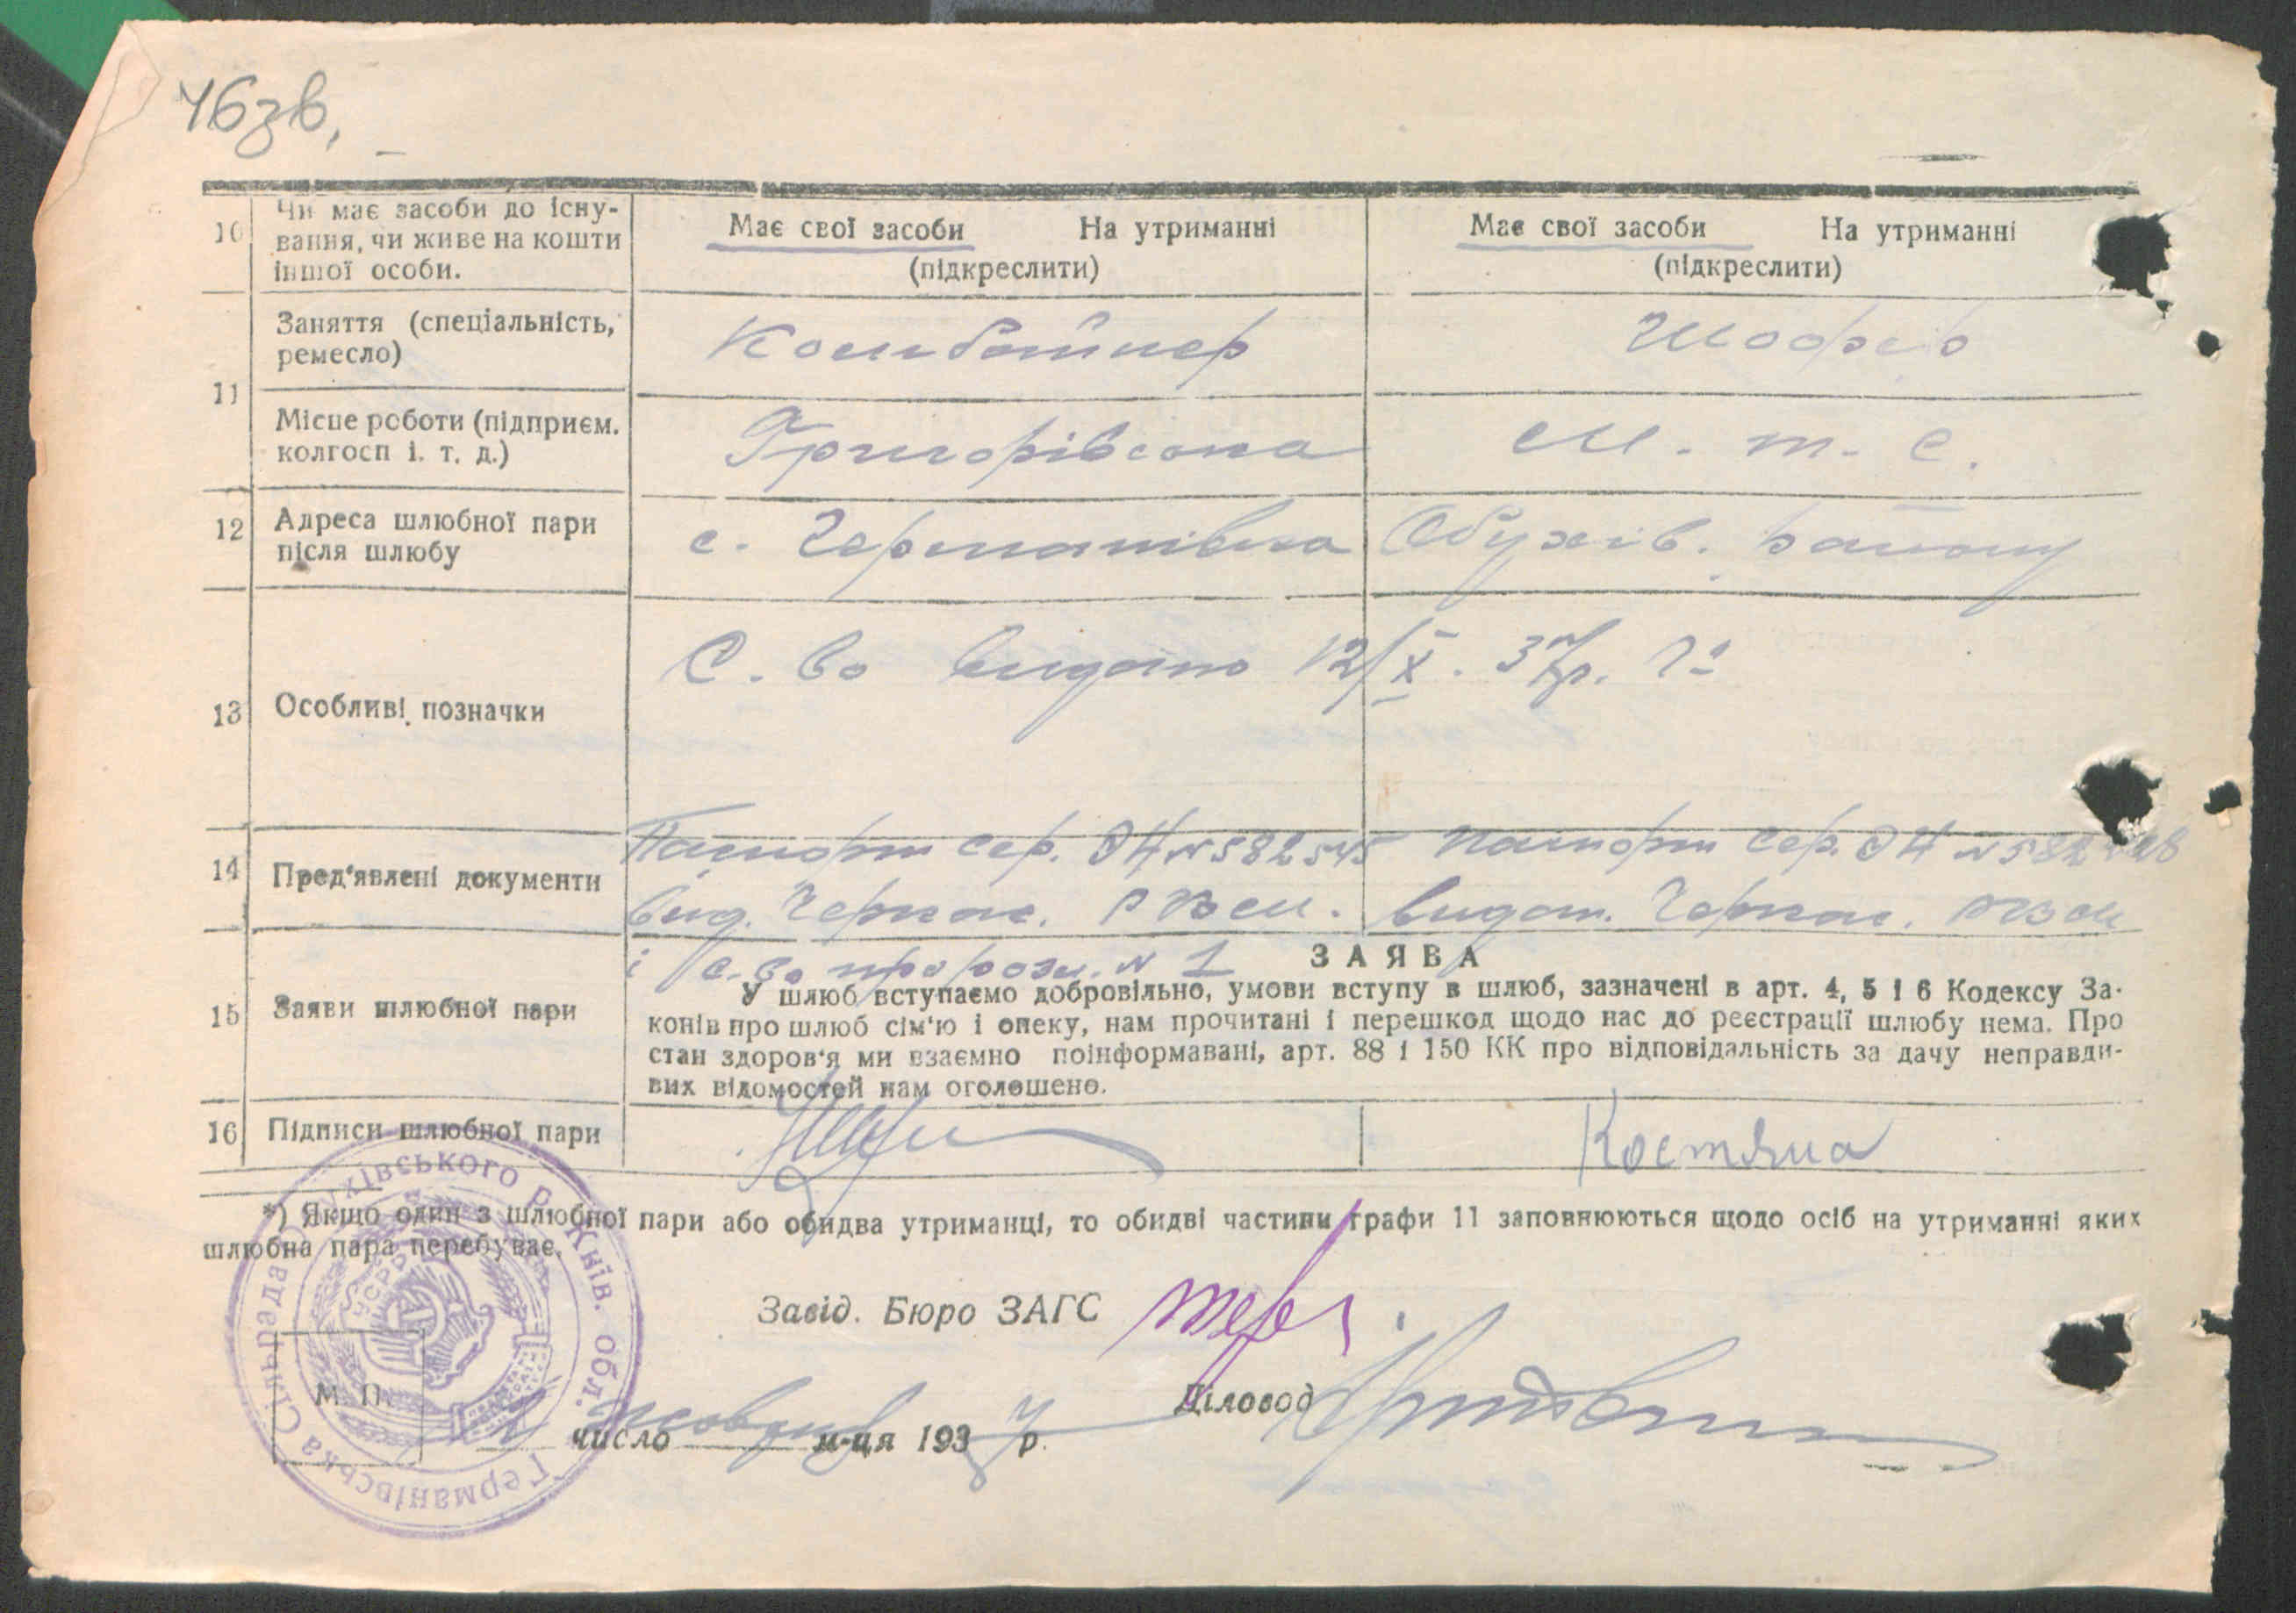 46зв.
10 Чи має засоби до існу-
вання, чи живе на кошти
іншої особи.
Має свої засоби На утриманні
(підкреслити)
Має свої засоби На утриманні
(підкреслити)
11 Заняття (спеціальність,
ремесло)
Комбайнер
Шофер
Місце роботи (підприєм.
колгосп і. т. д.)
Григорівська
М. т. с.
12 Адреса шлюбної пари
після шлюбу
с. Германівка Обухів. району
13 Особливі позначки
С. во видано 12/X. 37р.
14 Пред'явлені документи
Паспорт сер. ЭН № 582545
вид. Черкас.
і с-во про розл. № 1
Паспорт сер. ЭН № 582
видан. Черкас.
15 Заяви шлюбної пари
ЗАЯВА
У шлюб вступаємо добровільно, умови вступу в шлюб, зазначені в арт. 4, 5 і 6 Кодексу За-
конів про шлюб сім'ю і опеку, нам прочитані і перешкод щодо нас до реєстрації шлюбу нема. Про
стан здоров'я ми взаємно поінформавані, арт. 88 і 150 КК про відповідальність за дачу неправди-
вих відомостей нам оголошено.
16 Підписи шлюбної пари
*) Якщо один з шлюбної пари або обидва утриманці, то обидві частини графи 11 заповнюються щодо осіб на утриманні яких
шлюбна пара перебуває.
Завід. Бюро ЗАГС
Діловод
М. П.
число жовтня м-ця 1937 р.
Германівська Сільрада Обухівського р. Київ. обл.
УСРР